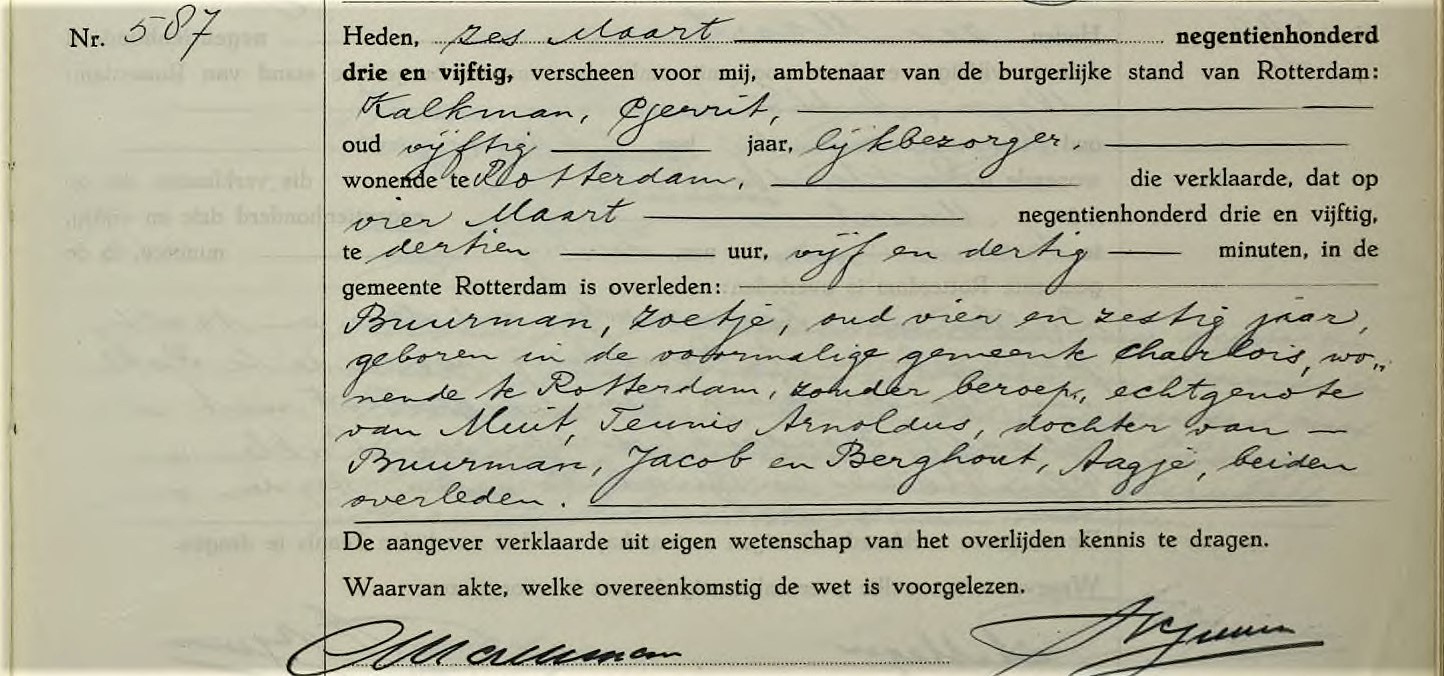 Nr. 587
Heden, zes Maart negentienhonderd
drie en vijftig, verscheen voor mij, ambtenaar van de burgerlijke stand van Rotterdam:
Kalkman, Gerrit,
oud vijftig jaar, lijkbezorger,
wonende te Rotterdam, die verklaarde, dat op
vier Maart negentienhonderd drie en vijftig,
te dertien uur, vijf en dertig minuten, in de
gemeente Rotterdam is overleden:
Buurman, Zoetje, oud vier en zestig jaar,
geboren in de voormalige gemeente Charlois, wo„
nende te Rotterdam, zonder beroep, echtgenote
van Muit, Teunis Arnoldus, dochter van —
Buurman, Jacob en Berghout, Aagje, beiden
overleden.
De aangever verklaarde uit eigen wetenschap van het overlijden kennis te dragen.
Waarvan akte, welke overeenkomstig de wet is voorgelezen.